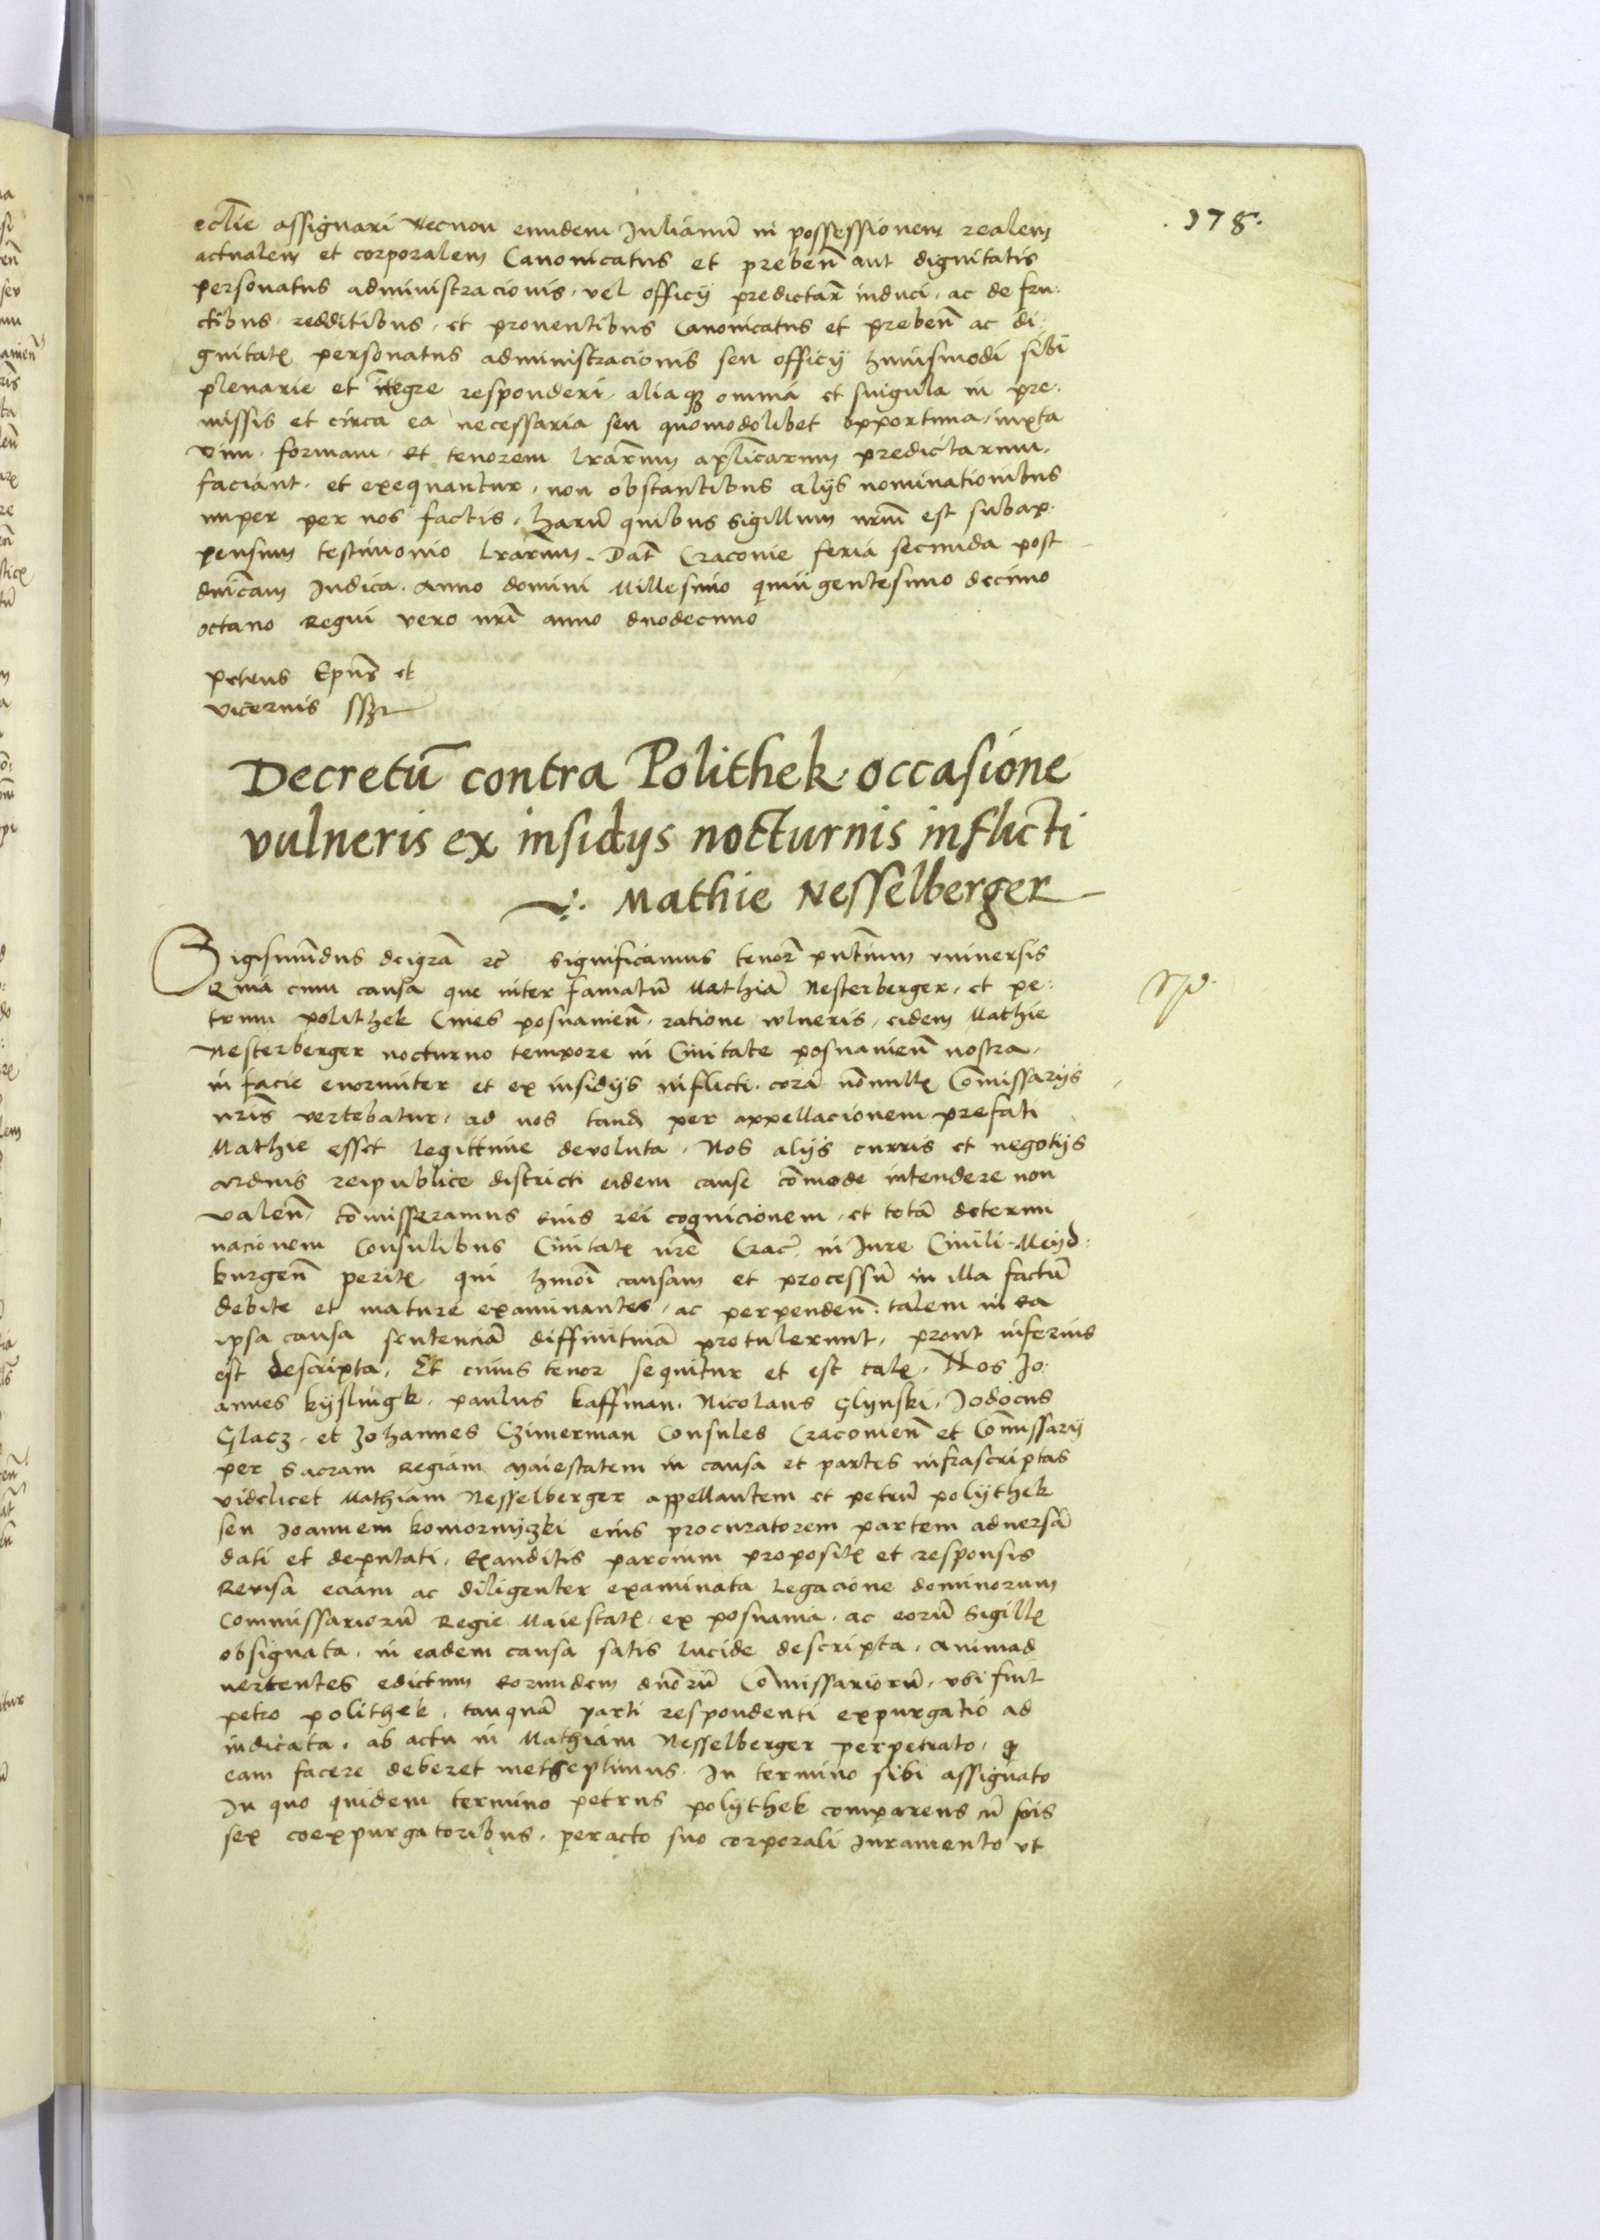 .178.
ecclie assignari Necnon eundem Julianū in possessionem realem
actualem et corporalem Canonicatus et prebeñ aut dignitatis
personatus administracionis, vel officij predictar̄ induci, ac de fru:
ctibus, redditibus, et prouentibus Canonicatus et prebeñ ac di:
gnitatꝭ personatus administracionis seu officij hmōi sibi
plenarie et ītegre responderi, aliaqꝫ omnia et singula in pre:
missis et circa ea necessaria seu quomodolibet opportuna, iuxta
vim, formam, et tenorem lrarum aplicarum predictarum,
faciant, et exequantur, non obstantibus alijs nominationibus
nuper per nos factis, harū quibus sigillum nrm̄ est subap:
pensum testimonio lrarum. Dat̄ Cracouie feria secunda post
dnīcam Judica. Anno domini Millesimo quingentesimo decimo
octauo Regni vero nrī anno duodecimo
Petrus Epūs et
Vicecnis sst
Decretū contra Polithek, occasione
vulneris ex insidijs nocturnis inflicti
Mathie Nesselberger
Sigismūdus deigrā etc̄ Significamus tenor̄ pntium vniuersis
Quia cum causa que inter famatū Mathiā Nesterberger, et pe:
trum polithek Ciues posnanieñ, ratione vlneris, eidem Mathie
Nesterberger nocturno tempore in Ciuitate posnanieñ nostra,
in facie enormiter et ex insidijs inflicti, corā nōnullꝭ Cōmissarijs
nrīs vertebatur, ad nos tandē per appellacionem prefati
Mathie esset legittime deuoluta, Nos alijs curris et negotijs
arduis reipublice districti eidem cause cōmode intendere non
valeñ, cōmisseramus eius rei cognicionem, et totā determi
nacionem Consulibus Ciuitatꝭ nrē Crac̄ in Jure Ciuili Meyd:
burgeñ peritꝭ qui hmoī causam et processū in illa factū
debite et mature examinantes, ac perpendeñ, talem in ea
ipsa causa sentenciā diffinitiuā protulerunt, prout inferius
est descripta, Et cuius tenor sequitur et est talꝭ, Nos Jo:
annes kyslingk, paulus kaffman, Nicolaus Glynski, Jodocus
Glacz, et Johannes Czimerman Consules Cracouieñ et Cōmissarij
per Sacram Regiam Maiestatem in causa et partes infrascriptas
videlicet Mathiam Nesselberger appellantem et petrū polythek
seu Joannem komornyczki eius procuratorem partem aduersā
dati et deputati, Exauditis parcium propositꝭ et responsis
Reuisa eciam ac diligenter examinata legacione dominorum
Commissariorū Regie Maiestatꝭ, ex posnania, ac eorū Sigillꝭ
obsignata, in eadem causa satis lucide descripta, animad
uertentes edictum eorundem dnōrū Cōmissariorū, vbi fuit
petro polithek, tanquā parti respondenti expurgatio ad
iudicata, ab actu in Mathiam Nesselberger perpetrato, ꝙ
eam facere deberet metseptimus, In termino sibi assignato
In quo quidem termino petrus polythek comparens cū suis
sex coexpurgatoribus, peracto suo corporali Juramento vt